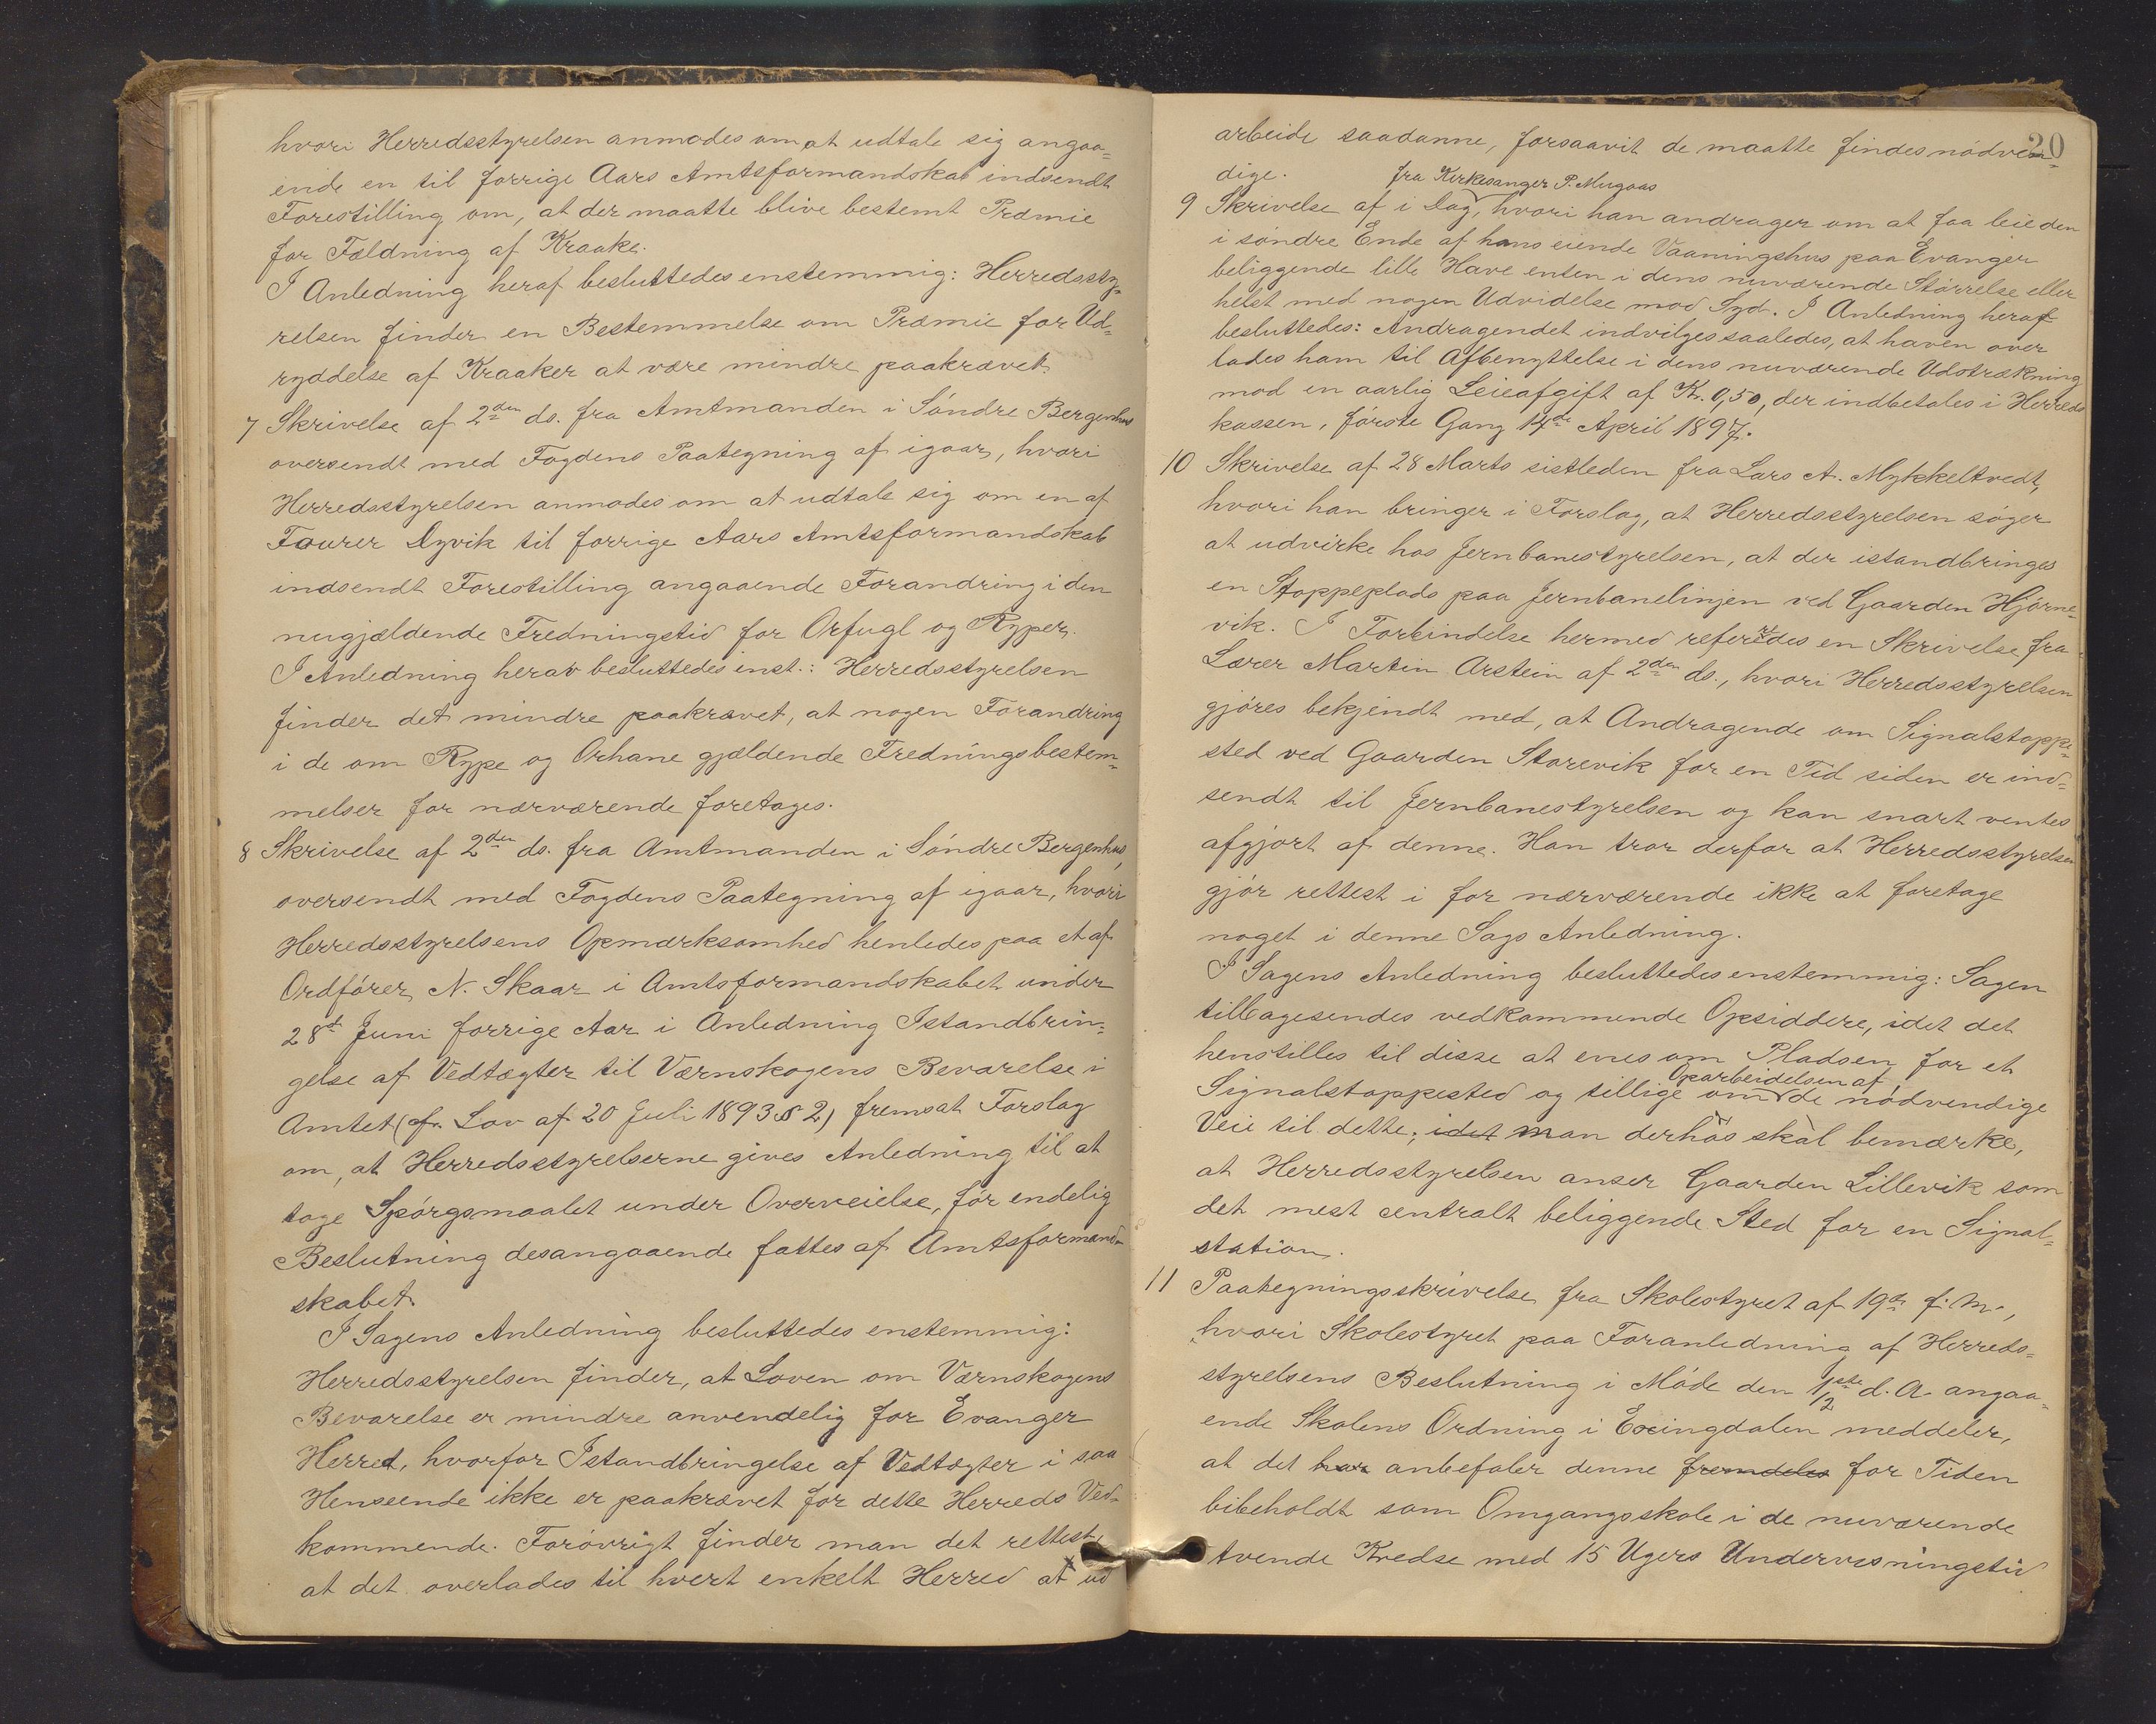 hvori Herredsstyrelsen anmodes om at udtale sig angaa=
ende en til forrige Aars Amtsformandskab indsendt
Forestilling om, at der maatte blive bestemt Præmie
for Fældning af Kraake.
I Anledning heraf besluttedes enstemmig: Herredssty=
relsen finder en Bestemmelse om Præmie for Ud=
ryddelse af Kraaker at være mindre paakrævet.
7 Skrivelse af 2den ds. fra Amtmanden i Söndre Bergenhus
oversendt med Fogdens Paategning af igaar, hvori
Herredsstyrelsen anmodes om at udtale sig om en af
Fourer Dyvik til forrige Aars Amtsformandskab
indsendt Forestilling angaaende Forandring i den
nugjældende Fredningstid for Orfugl og Ryper.
I Anledning herav besluttedes enst.: Herredsstyrelsen
finder det mindre paakrævet, at nogen Forandring
i de om Rype og Orhane gjældende Fredningsbestem=
melser for nærværende foretages.
8 Skrivelse af 2den ds. fra Amtmanden i Söndre Bergenhus,
oversendt med Fogdens Paategning af igaar, hvori
Herredsstyrelsens Opmærksomhed henledes paa et af
Ordförer N. Skaar i Amtsformandskabet under
28de Juni forrige Aar i Anledning Istandbrin=
gelse af Vedtægter til Værnskogens Bevarelse i
Amtet (cfr. Lov af 20 Juli 1893 § 2) fremsat Forslag
om, at Herredsstyrelserne gives Anledning til at
tage Spörgsmaalet under Overveielse, för endelig
Beslutning desangaaende fattes af Amtsformand=
skabet.
I Sagens Anledning besluttedes enstemmig:
Herredsstyrelsen finder, at Loven om Værnskogens
Bevarelse er mindre anvendelig for Evanger
Herred, hvorfor Istandbringelse af Vedtægter i saa
Henseende ikke er paakrævet for dette Herreds Ved=
kommende. Forövrigt finder man det rettest,
at det overlades til hvert enkelt Herred at ud
20
arbeide saadanne, forsaavit de maatte findes nödven=
dige.
fra Kirkesanger P. Mugaas
9 Skrivelse af i Dag, hvori han andrager om at faa leie den
i söndre Ende af hans eiende Vaaningshus paa Evanger
beliggende lille Have enten i dens nuværende Störrelse eller
helst med nogen Udvidelse mod Syd. I Anledning heraf
besluttedes: Andragendet indvilges saaledes, at haven over
lades ham til Afbenyttelse i dens nuværende Udstrækning
mod en aarlig Leieafgift af Kr. 0,50, der indbetales i Herreds
kassen, förste Gang 14de April 1897.
10 Skrivelse af 28 Marts sistleden fra Lars A. Mykkeltvedt,
hvori han bringer i Forslag, at Herredsstyrelsen söger
at udvirke hos Jernbanestyrelsen, at der istandbringes
en Stoppeplads paa Jernbanelinjen ved Gaarden Hjörne=
vik. I Forbindelse hermed refereredes en Skrivelse fra
Lærer Martin Arstein af 2den ds., hvori Herredsstyrelsen
gjöres bekjendt med, at Andragende om Signalstoppe=
sted ved Gaarden Storevik for en Tid siden er ind=
sendt til Jernbanestyrelsen og kan snart ventes
afgjort af denne. Han tror derfor at Herredsstyrelsen
gjör rettest i for nærværende ikke at foretage
noget i denne Sags Anledning.
I Sagens Anledning besluttedes enstemmig: Sagen
tilbagesendes vedkommende Opsiddere, idet det
henstilles til disse at enes om Pladsen for et
Oparbeidelsen af
Signalstoppested og tillige om de nödvendige
Veie til dette; idet man derhos skal bemærke,
at Herredsstyrelsen anser Gaarden Lillevik som
det mest centralt beliggende Sted for en Signal=
station.
11 Paategningsskrivelse fra Skolestyret af 19de f. M.,
hvori Skolestyret paa Foranledning af Herreds=
styrelsens Beslutning i Möde den 1ste/2 d. A. angaa=
ende Skolens Ordning i Exingdalen meddeler,
at det har anbefaler denne fremdeles for Tiden
bibeholdt som Omgangsskole i de nuværende
tvende Kredse med 15 Ugers Undervisningstid